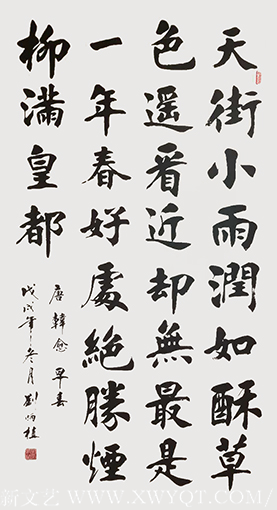 天街小雨潤如酥草
色遥看近却無最是
一年春好處絶勝煙
柳滿皇都
唐韓愈 早春
戊戌年冬月劉炳
新文艺 WWW.XWYQT.COM